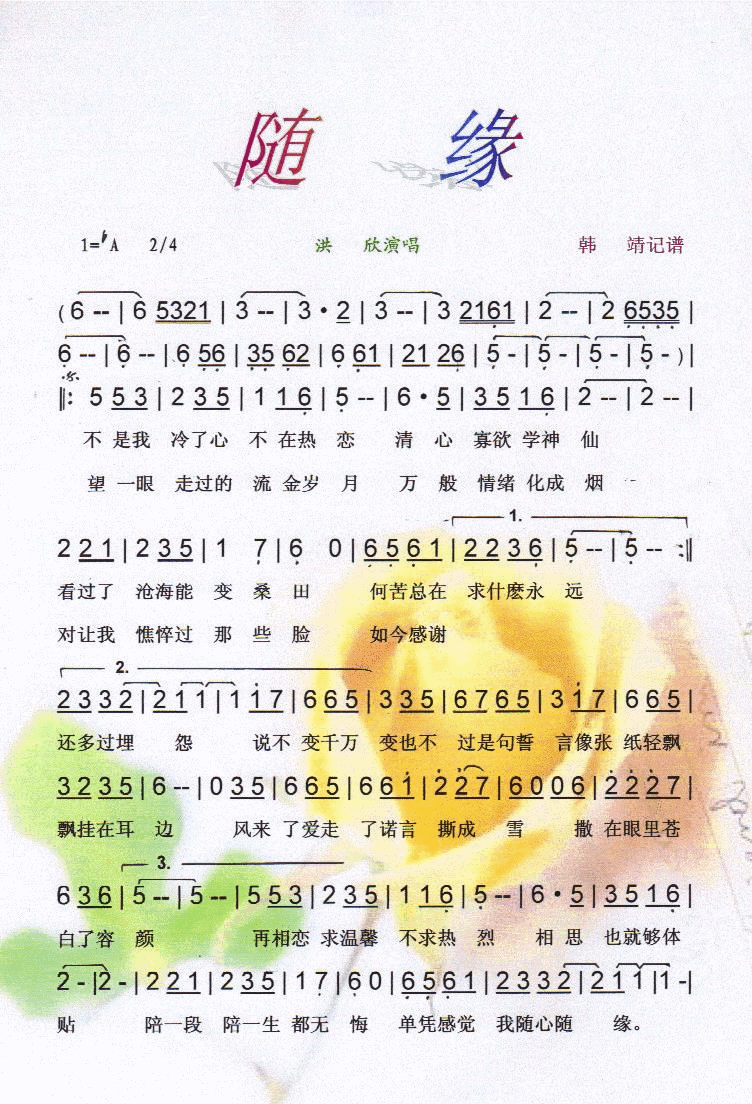 随 缘
1=♭A 2/4 洪 欣演唱 韩 靖记谱
( 6 -- | 6 5321 | 3 -- | 3 · 2 | 3 -- | 3 2161 | 2 -- | 2 6535 |
6 -- | 6 -- | 6 56 | 35 62 | 6 61 | 21 26 | 5 - | 5 - | 5 - | 5 - ) |
‖: 5 5 3 | 2 3 5 | 1 1 6 | 5 -- | 6 · 5 | 3 5 1 6 | 2 -- | 2 -- |
不 是我 冷了心 不 在热 恋 清 心 寡欲 学神 仙
望 一眼 走过的 流 金岁 月 万 般 情绪 化成 烟
1.
2 2 1 | 2 3 5 | 1 7 | 6 0 | 6 5 6 1 | 2 2 3 6 | 5 -- | 5 -- :‖
看过了 沧海能 变 桑 田 何苦总在 求什麽永 远
对让我 憔悴过 那 些 脸 如今感谢
2.
2 3 3 2 | 2 1 1 | 1 1 7 | 6 6 5 | 3 3 5 | 6 7 6 5 | 3 1 7 | 6 6 5 |
还多过埋 怨 说不 变千万 变也不 过是句誓 言像张 纸轻飘
3 2 3 5 | 6 -- | 0 3 5 | 6 6 5 | 6 6 1 | 2 2 7 | 6 0 0 6 | 2 2 2 7 |
飘挂在耳 边 风来 了爱走 了诺言 撕成 雪 撒 在眼里苍
3.
6 3 6 | 5 -- | 5 -- | 5 5 3 | 2 3 5 | 1 1 6 | 5 -- | 6 · 5 | 3 5 1 6 |
白了容 颜 再相恋 求温馨 不求热 烈 相 思 也就够体
2 - | 2 - | 2 2 1 | 2 3 5 | 1 7 | 6 0 | 6 5 6 1 | 2 3 3 2 | 2 1 1 | 1 - |
贴 陪一段 陪一生 都无 悔 单凭感觉 我随心随 缘。